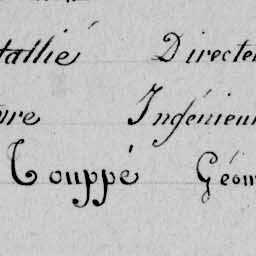 tallié Directe
vre Ingénieu
Touppé Géom